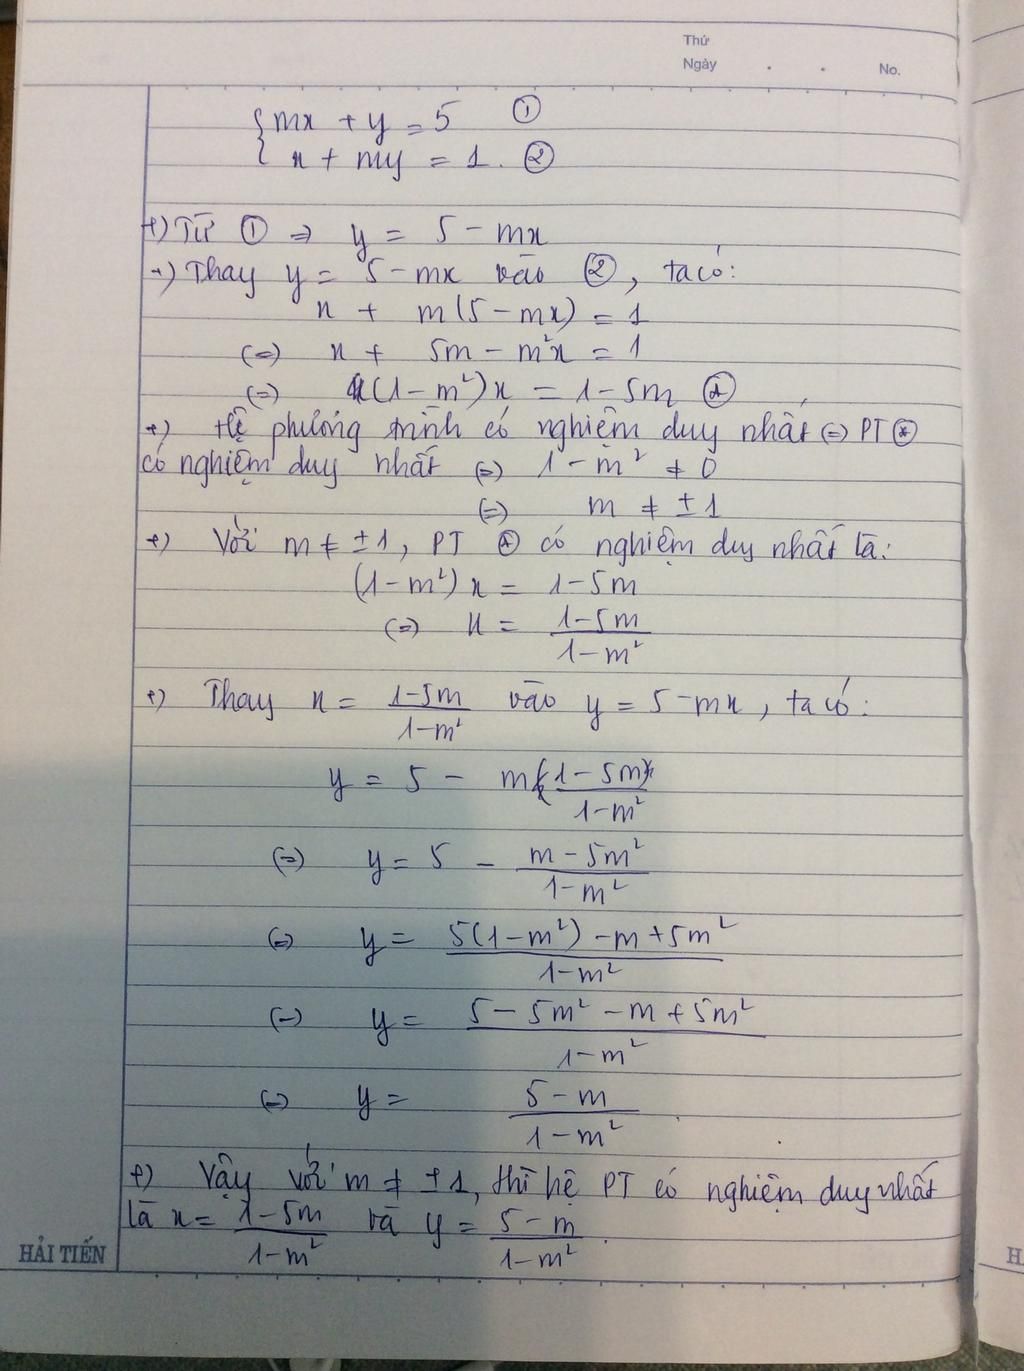 Thứ
Ngày . . No.
{ mx + y = 5 ①
x + my = 1. ②
+) Từ ① => y = 5 - mx
+) Thay y = 5 - mx vào ②, ta có:
x + m(5 - mx) = 1
(=) x + 5m - m²x = 1
(=) (1 - m²)x = 1 - 5m (*)
+) Hệ phương trình có nghiệm duy nhất (=) PT (*)
có nghiệm duy nhất (=) 1 - m² ≠ 0
(=) m ≠ ±1
+) Với m ≠ ±1, PT (*) có nghiệm duy nhất là:
(1 - m²)x = 1 - 5m
(=) x = (1 - 5m)/(1 - m²)
+) Thay x = (1 - 5m)/(1 - m²) vào y = 5 - mx, ta có:
y = 5 - m(1 - 5m)/(1 - m²)
(=) y = 5 - (m - 5m²)/(1 - m²)
(=) y = (5(1 - m²) - m + 5m²)/(1 - m²)
(=) y = (5 - 5m² - m + 5m²)/(1 - m²)
(=) y = (5 - m)/(1 - m²)
+) Vậy với m ≠ ±1, thì hệ PT có nghiệm duy nhất
là x = (1 - 5m)/(1 - m²) và y = (5 - m)/(1 - m²).
HẢI TIẾN
H